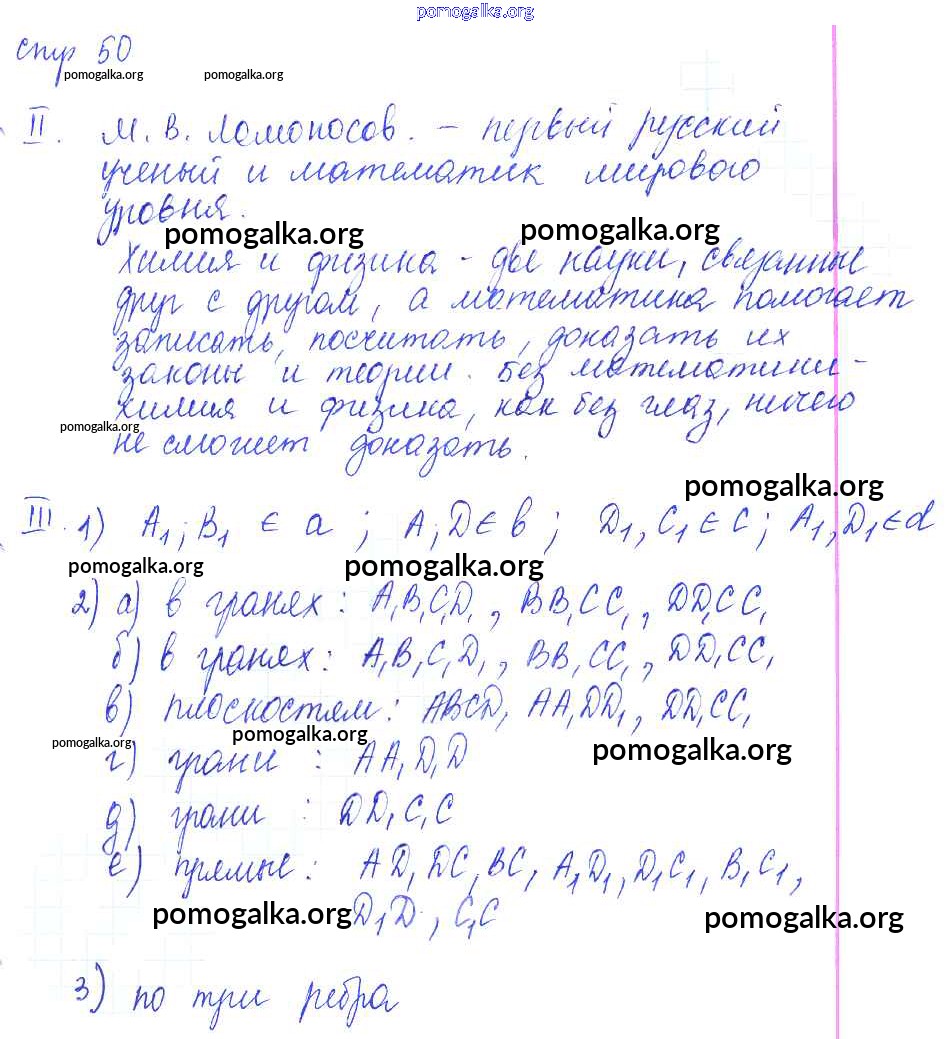 pomogalka.org
стр 50
pomogalka.org pomogalka.org
II. М. В. Ломоносов. – первый русский
ученый и математик мирового
уровня.
pomogalka.org pomogalka.org
Химия и физика - две науки, связанные
друг с другом, а математика помогает
записать, посчитать, доказать их
законы и теории. Без математики -
химия и физика, как без глаз, ничего
pomogalka.org
не сможет доказать.
pomogalka.org
III. 1) A₁; B₁ ∈ a ; A; D ∈ b ; D₁, C₁ ∈ c ; A₁, D₁ ∈ d
pomogalka.org pomogalka.org
2) а) в гранях : A₁B₁C₁D₁ , BB₁CC₁ , DD₁CC₁
б) в гранях : A₁B₁C₁D₁ , BB₁CC₁ , DD₁CC₁
в) плоскостям : ABCD, AA₁DD₁ , DD₁CC₁
pomogalka.org pomogalka.org pomogalka.org
г) грани : AA₁D₁D
д) грани : DD₁C₁C
е) прямые : AD, DC, BC, A₁D₁, D₁C₁, B₁C₁,
pomogalka.org D₁D , C₁C pomogalka.org
3) по три ребра